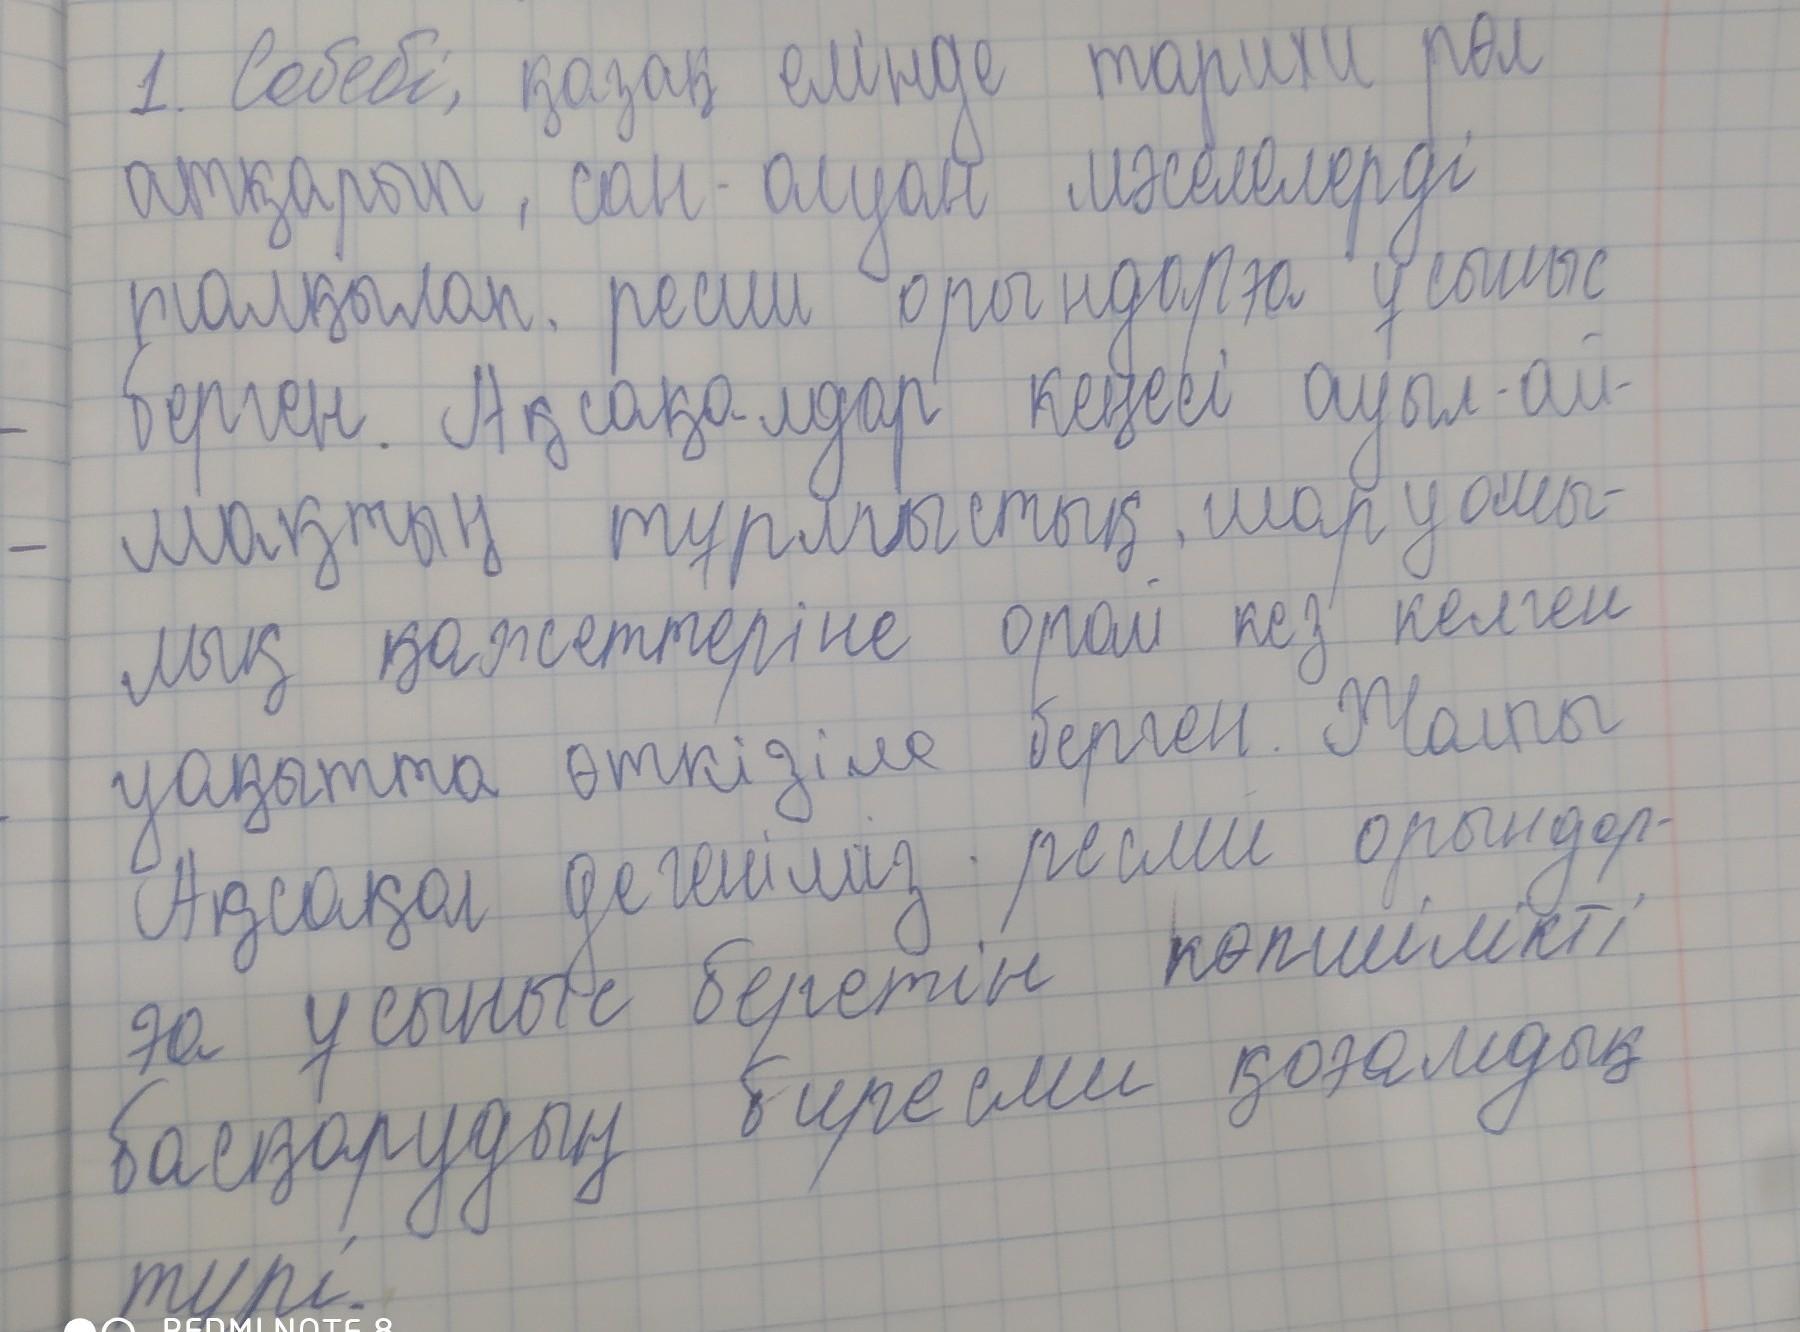 1. Себебі, қазақ елінде тарихи рөл
атқарып, сан-алуан мәселелерді
талқылап. ресми орындарға ұсыныс
берген. Ақсақалдар кеңесі ауыл-ай-
мақтың тұрмыстық, шаруашы-
лық қажеттеріне орай кез келген
уақытта өткізіле берген. Жалпы
Ақсақал дегеніміз. ресми орындар-
ға ұсыныс беретін көпшілікті
басқарудың биресми қоғамдық
түрі.
REDMI NOTE 8